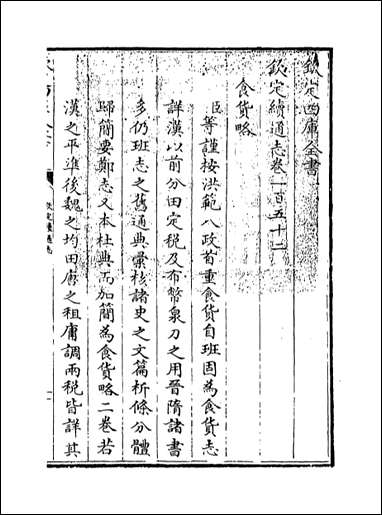 欽定四庫全書
欽定續通志卷一百五十二
食貨略
臣等謹按洪範八政首重食貨自班固為食貨志
詳漢以前分田定税及布幣泉刀之用晉隋諸書
多仍班志之舊通典彚核諸史之文篇析條分體
歸簡要鄭志又本杜典而加簡為食貨略二卷若
漢之平準後魏之均田唐之租庸調兩税皆詳其